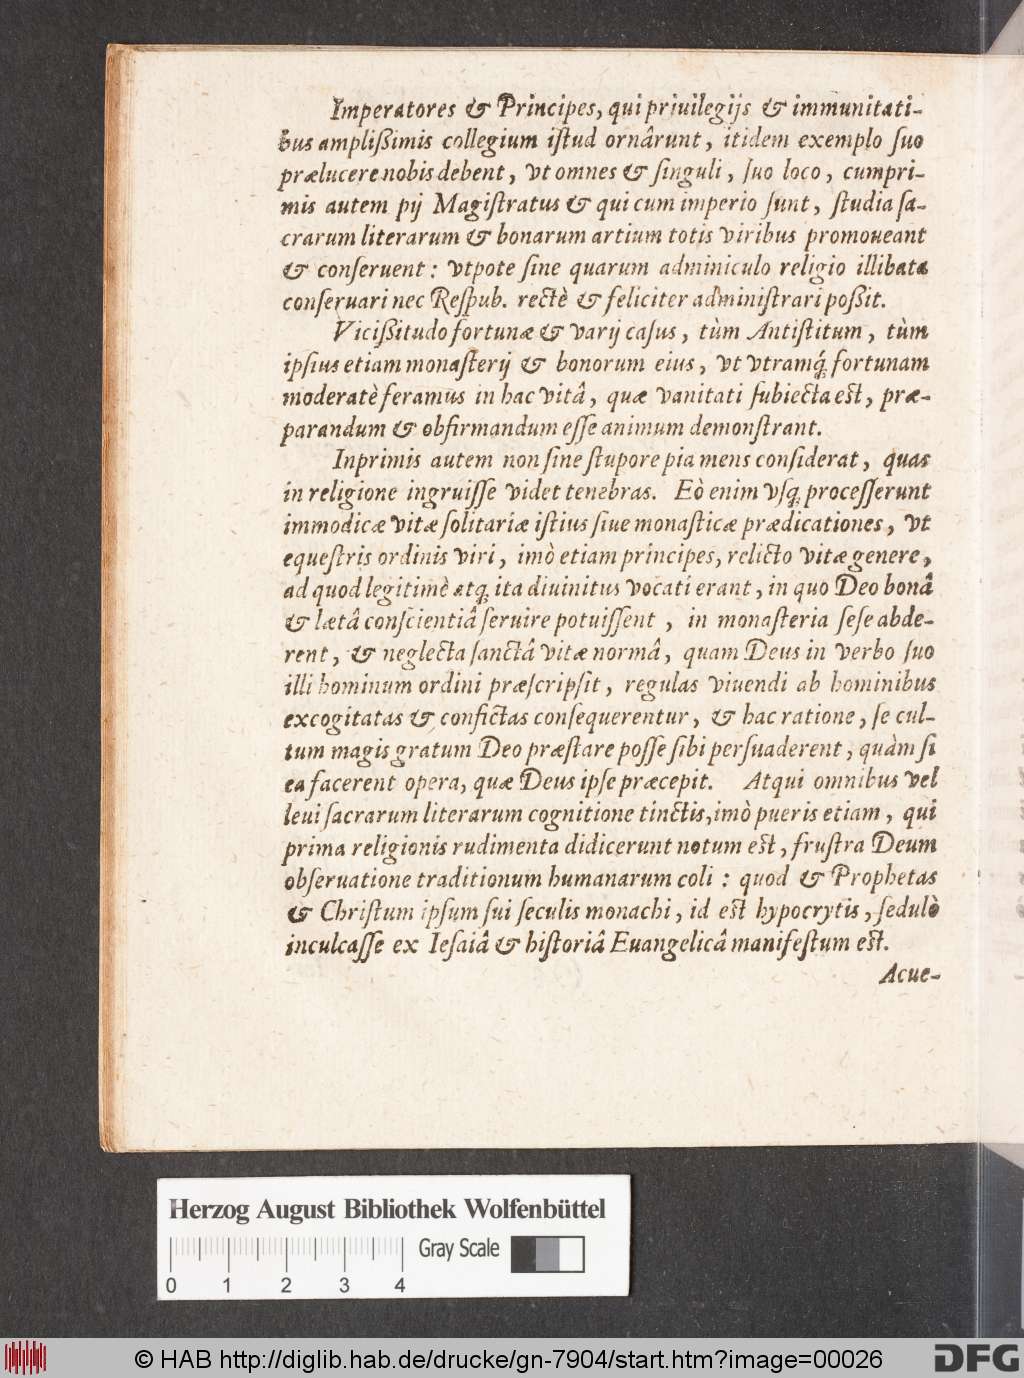 Imperatores & Principes, qui priuilegijs & immunitati-
bus amplißimis collegium iſtud ornârunt, itidem exemplo ſuo
prælucere nobis debent, vt omnes & ſinguli, ſuo loco, cumpri-
mis autem pij Magiſtratus & qui cum imperio ſunt, ſtudia ſa-
crarum literarum & bonarum artium totis viribus promoueant
& conſeruent: vtpote ſine quarum adminiculo religio illibata
conſeruari nec Reſpub. rectè & feliciter adminiſtrari poßit.
Vicißitudo fortunæ & varij caſus, tùm Antiſtitum, tùm
ipſius etiam monaſterij & bonorum eius, vt vtramq́; fortunam
moderatè feramus in hac vitâ, quæ vanitati ſubiecta eſt, præ-
parandum & obfirmandum eſſe animum demonſtrant.
Inprimis autem non ſine ſtupore pia mens conſiderat, quas
in religione ingruiſſe videt tenebras. Eò enim vſq; proceſſerunt
immodicæ vitæ ſolitariæ iſtius ſiue monaſticæ prædicationes, vt
equeſtris ordinis viri, imò etiam principes, relicto vitæ genere,
ad quod legitimè atq; ita diuinitus vocati erant, in quo Deo bonâ
& lætâ conſcientiâ ſeruire potuiſſent, in monaſteria ſeſe abde-
rent, & neglecta ſanctâ vitæ normâ, quam Deus in verbo ſuo
illi hominum ordini præſcripſit, regulas viuendi ab hominibus
excogitatas & confictas conſequerentur, & hac ratione, ſe cul-
tum magis gratum Deo præſtare poſſe ſibi perſuaderent, quàm ſi
ea facerent opera, quæ Deus ipſe præcepit. Atqui omnibus vel
leui ſacrarum literarum cognitione tinctis, imò pueris etiam, qui
prima religionis rudimenta didicerunt notum eſt, fruſtra Deum
obſeruatione traditionum humanarum coli: quod & Prophetas
& Chriſtum ipſum ſui ſeculis monachi, id eſt hypocrytis, ſedulò
inculcaſſe ex Ieſaiâ & hiſtoriâ Euangelicâ manifeſtum eſt.
Acue-
Herzog August Bibliothek Wolfenbüttel
Gray Scale
0 1 2 3 4
© HAB http://diglib.hab.de/drucke/gn-7904/start.htm?image=00026
DFG